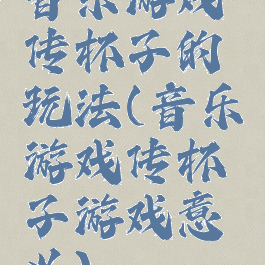 音乐游戏
传杯子的
玩法(音乐
游戏传杯
子游戏意
义)